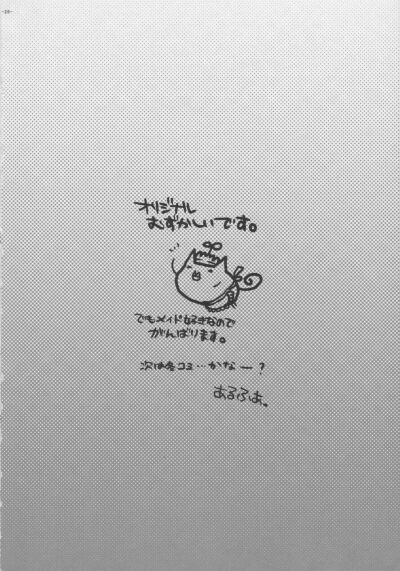 オリジナル
むずかしいです。
でもメイド好きなので
がんばります。
次は冬コミ…かなー？
あるふぁ。